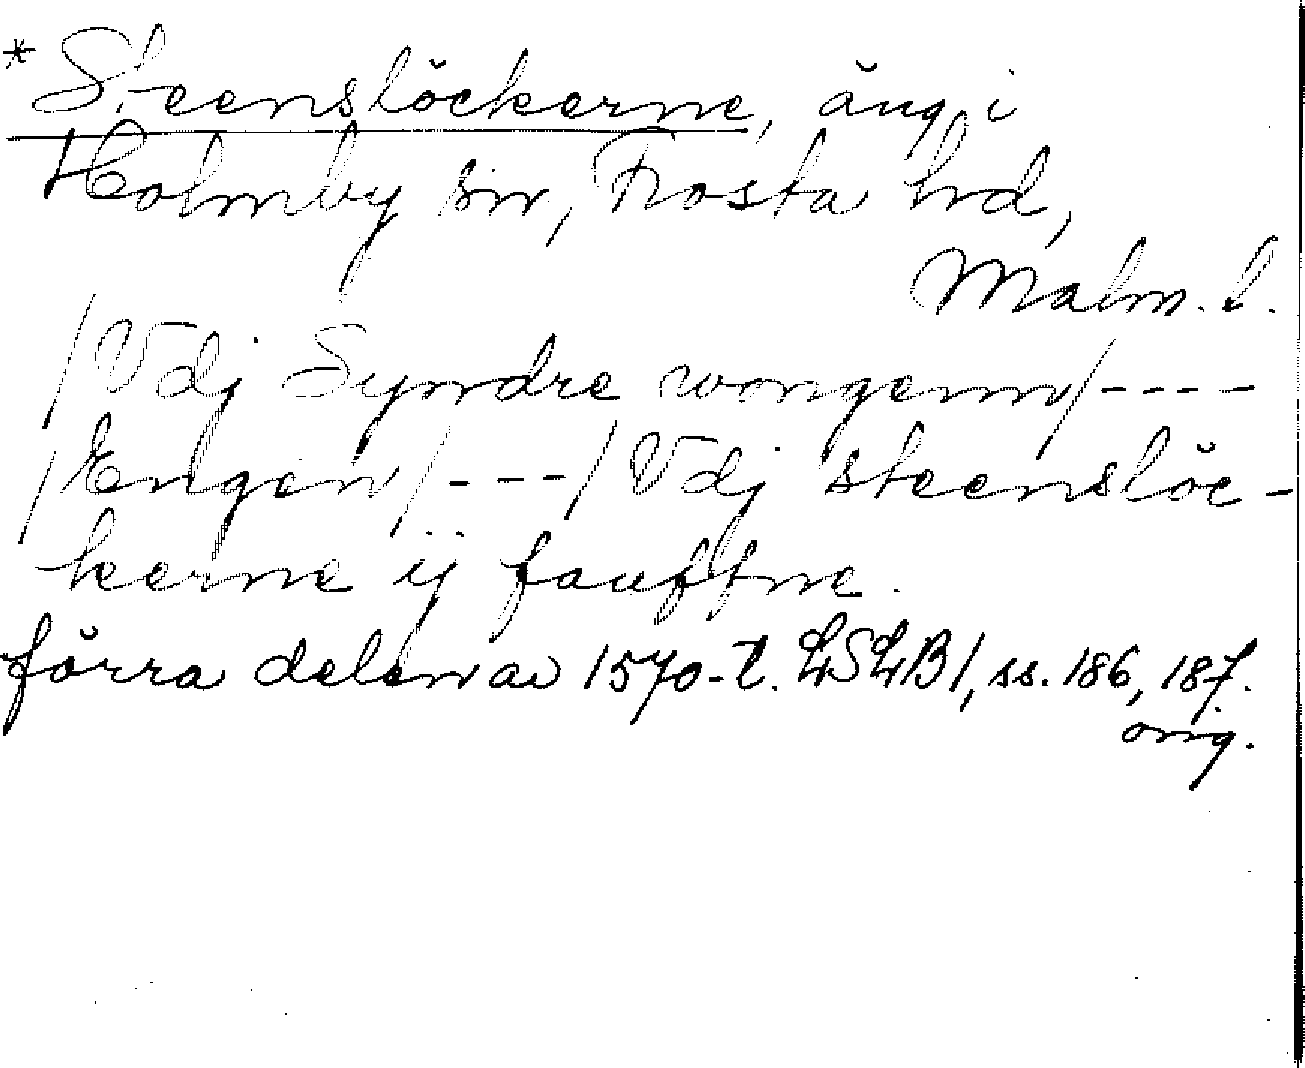 * Steenslöckerne, äng i
Holmby sn, Frosta hd,
Malm. l.
/Vdj Syndre wongenn/----
/Engen/---/Vdj steenslöc-
kerne ij fauffne.
förra delen av 1570-t. LSLB1, ss. 186, 187.
orig.